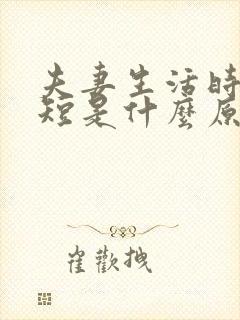 夫妻生活時
短是什麼原
崔歡拽